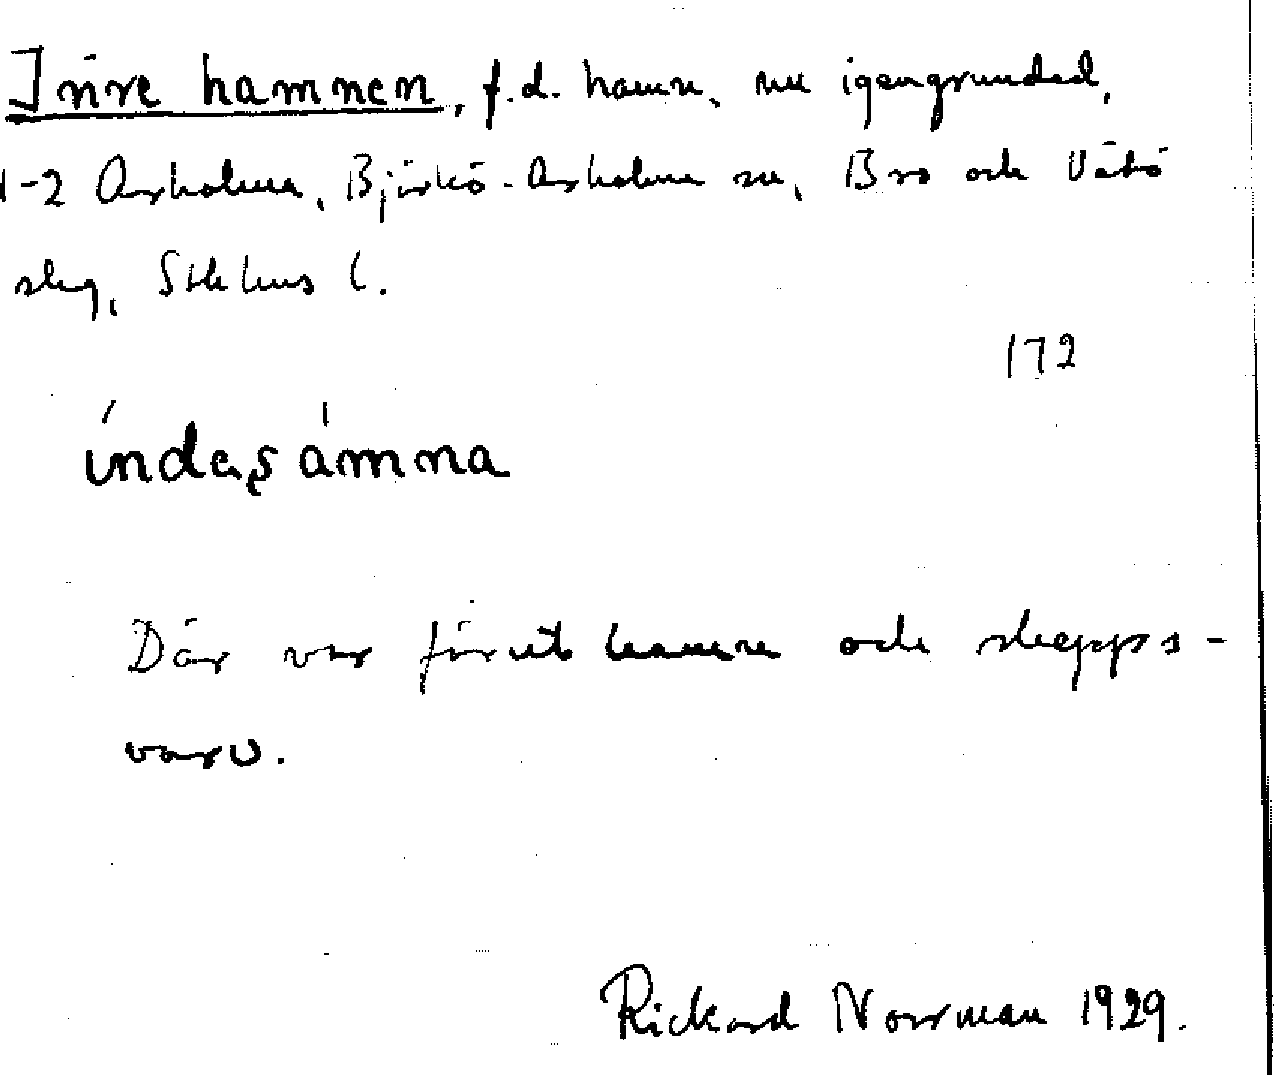 Inre hamnen, f.d. hamn, nu igengrundad,
1-2 Arholma, Björkö-Arholma sn, Bro och Vätö
slg, Sthlms l.
172
índaʂámna
Där var förut hamn och skepps-
varv.
Rickard Norrman 1929.